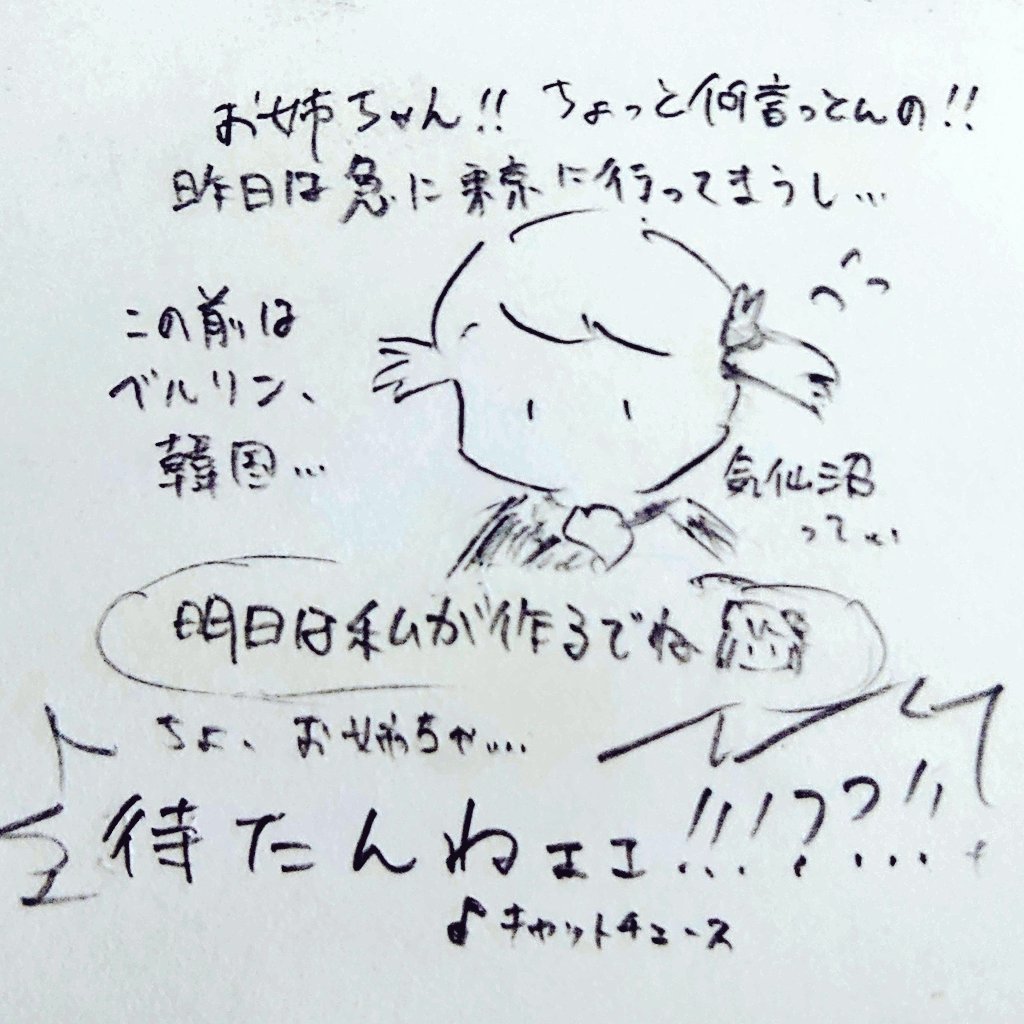 お姉ちゃん!! ちょっと何言っとんの!!
昨日は急に東京に行ってまうし…
この前は
ベルリン、
韓国…
気仙沼
って…
明日は私が作るでね
ちょ、お姉ちゃ…
待たんねェェ!!!???…!!
♪キャットチェース